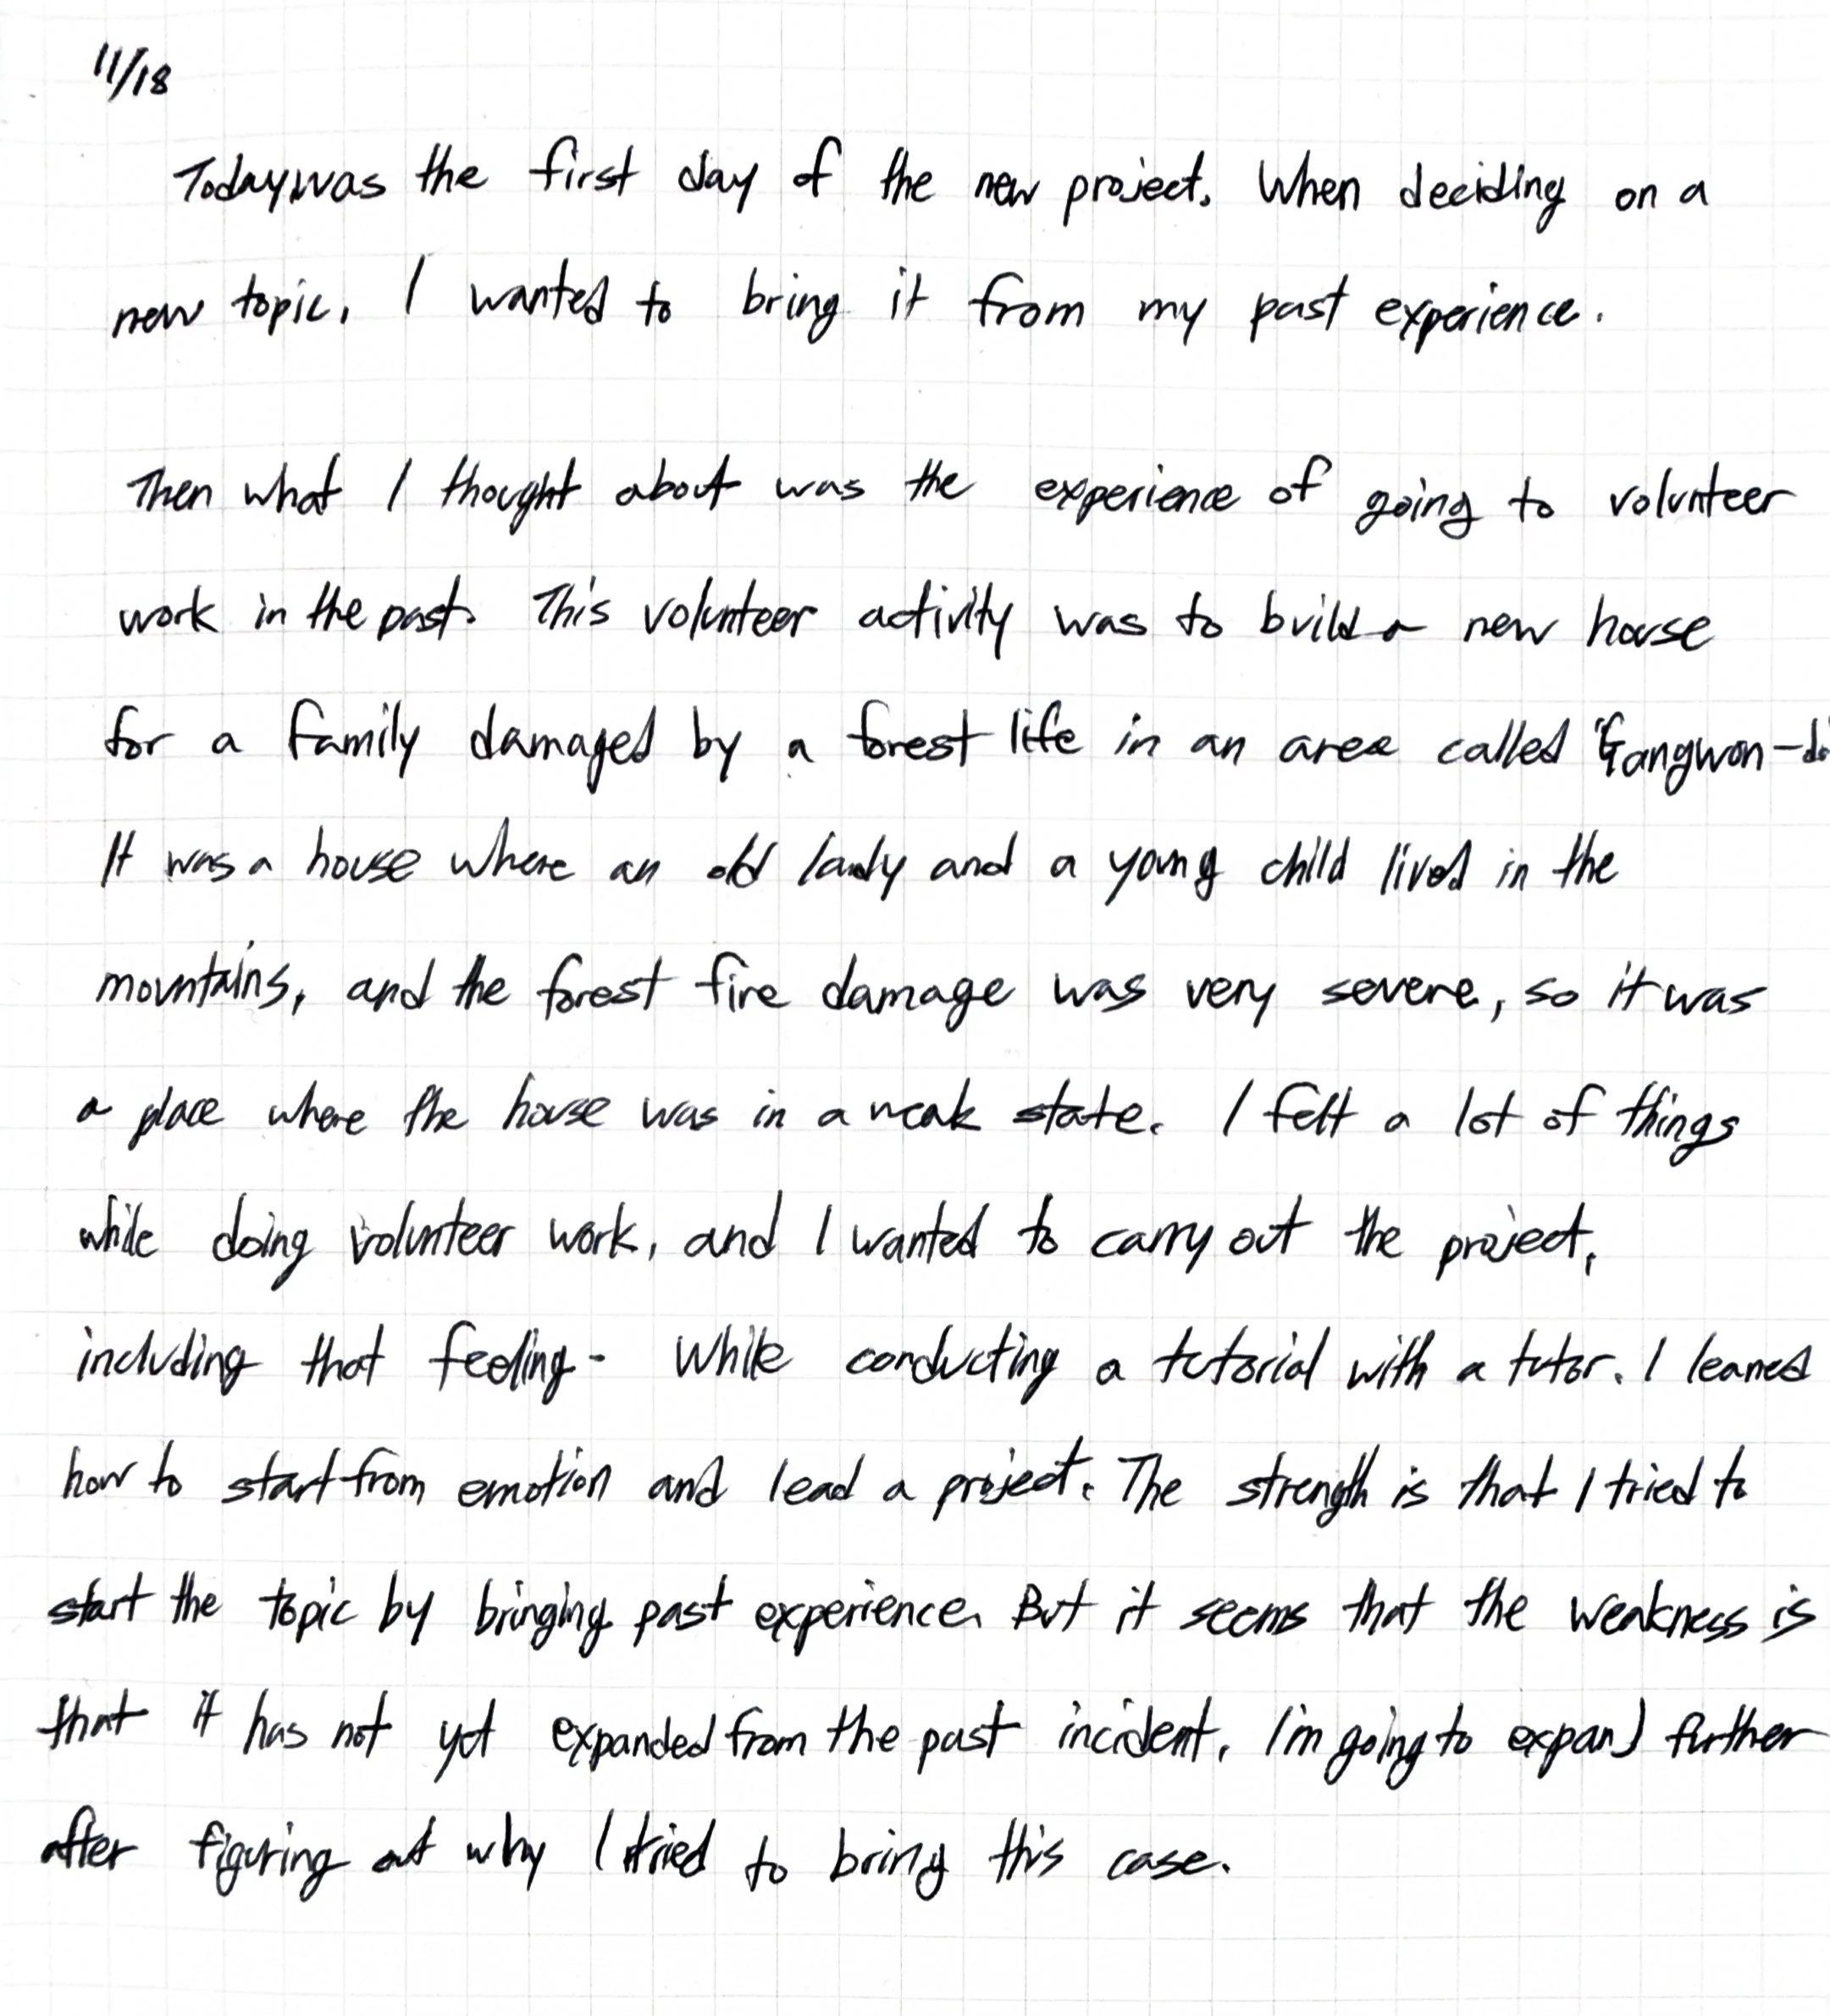 11/18
Today was the first day of the new project. When deciding on a
new topic, I wanted to bring it from my past experience.
Then what I thought about was the experience of going to volunteer
work in the past. This volunteer activity was to build a new house
for a family damaged by a forest life in an area called 'Gangwon-do'
It was a house where an old lady and a young child lived in the
mountains, and the forest fire damage was very severe, so it was
a place where the house was in a weak state. I felt a lot of things
while doing volunteer work, and I wanted to carry out the project,
including that feeling. While conducting a tutorial with a tutor. I leaned
how to start from emotion and lead a project. The strength is that I tried to
start the topic by bringing past experience. But it seems that the weakness is
that it has not yet expanded from the past incident. I'm going to expand further
after figuring out why I tried to bring this case.